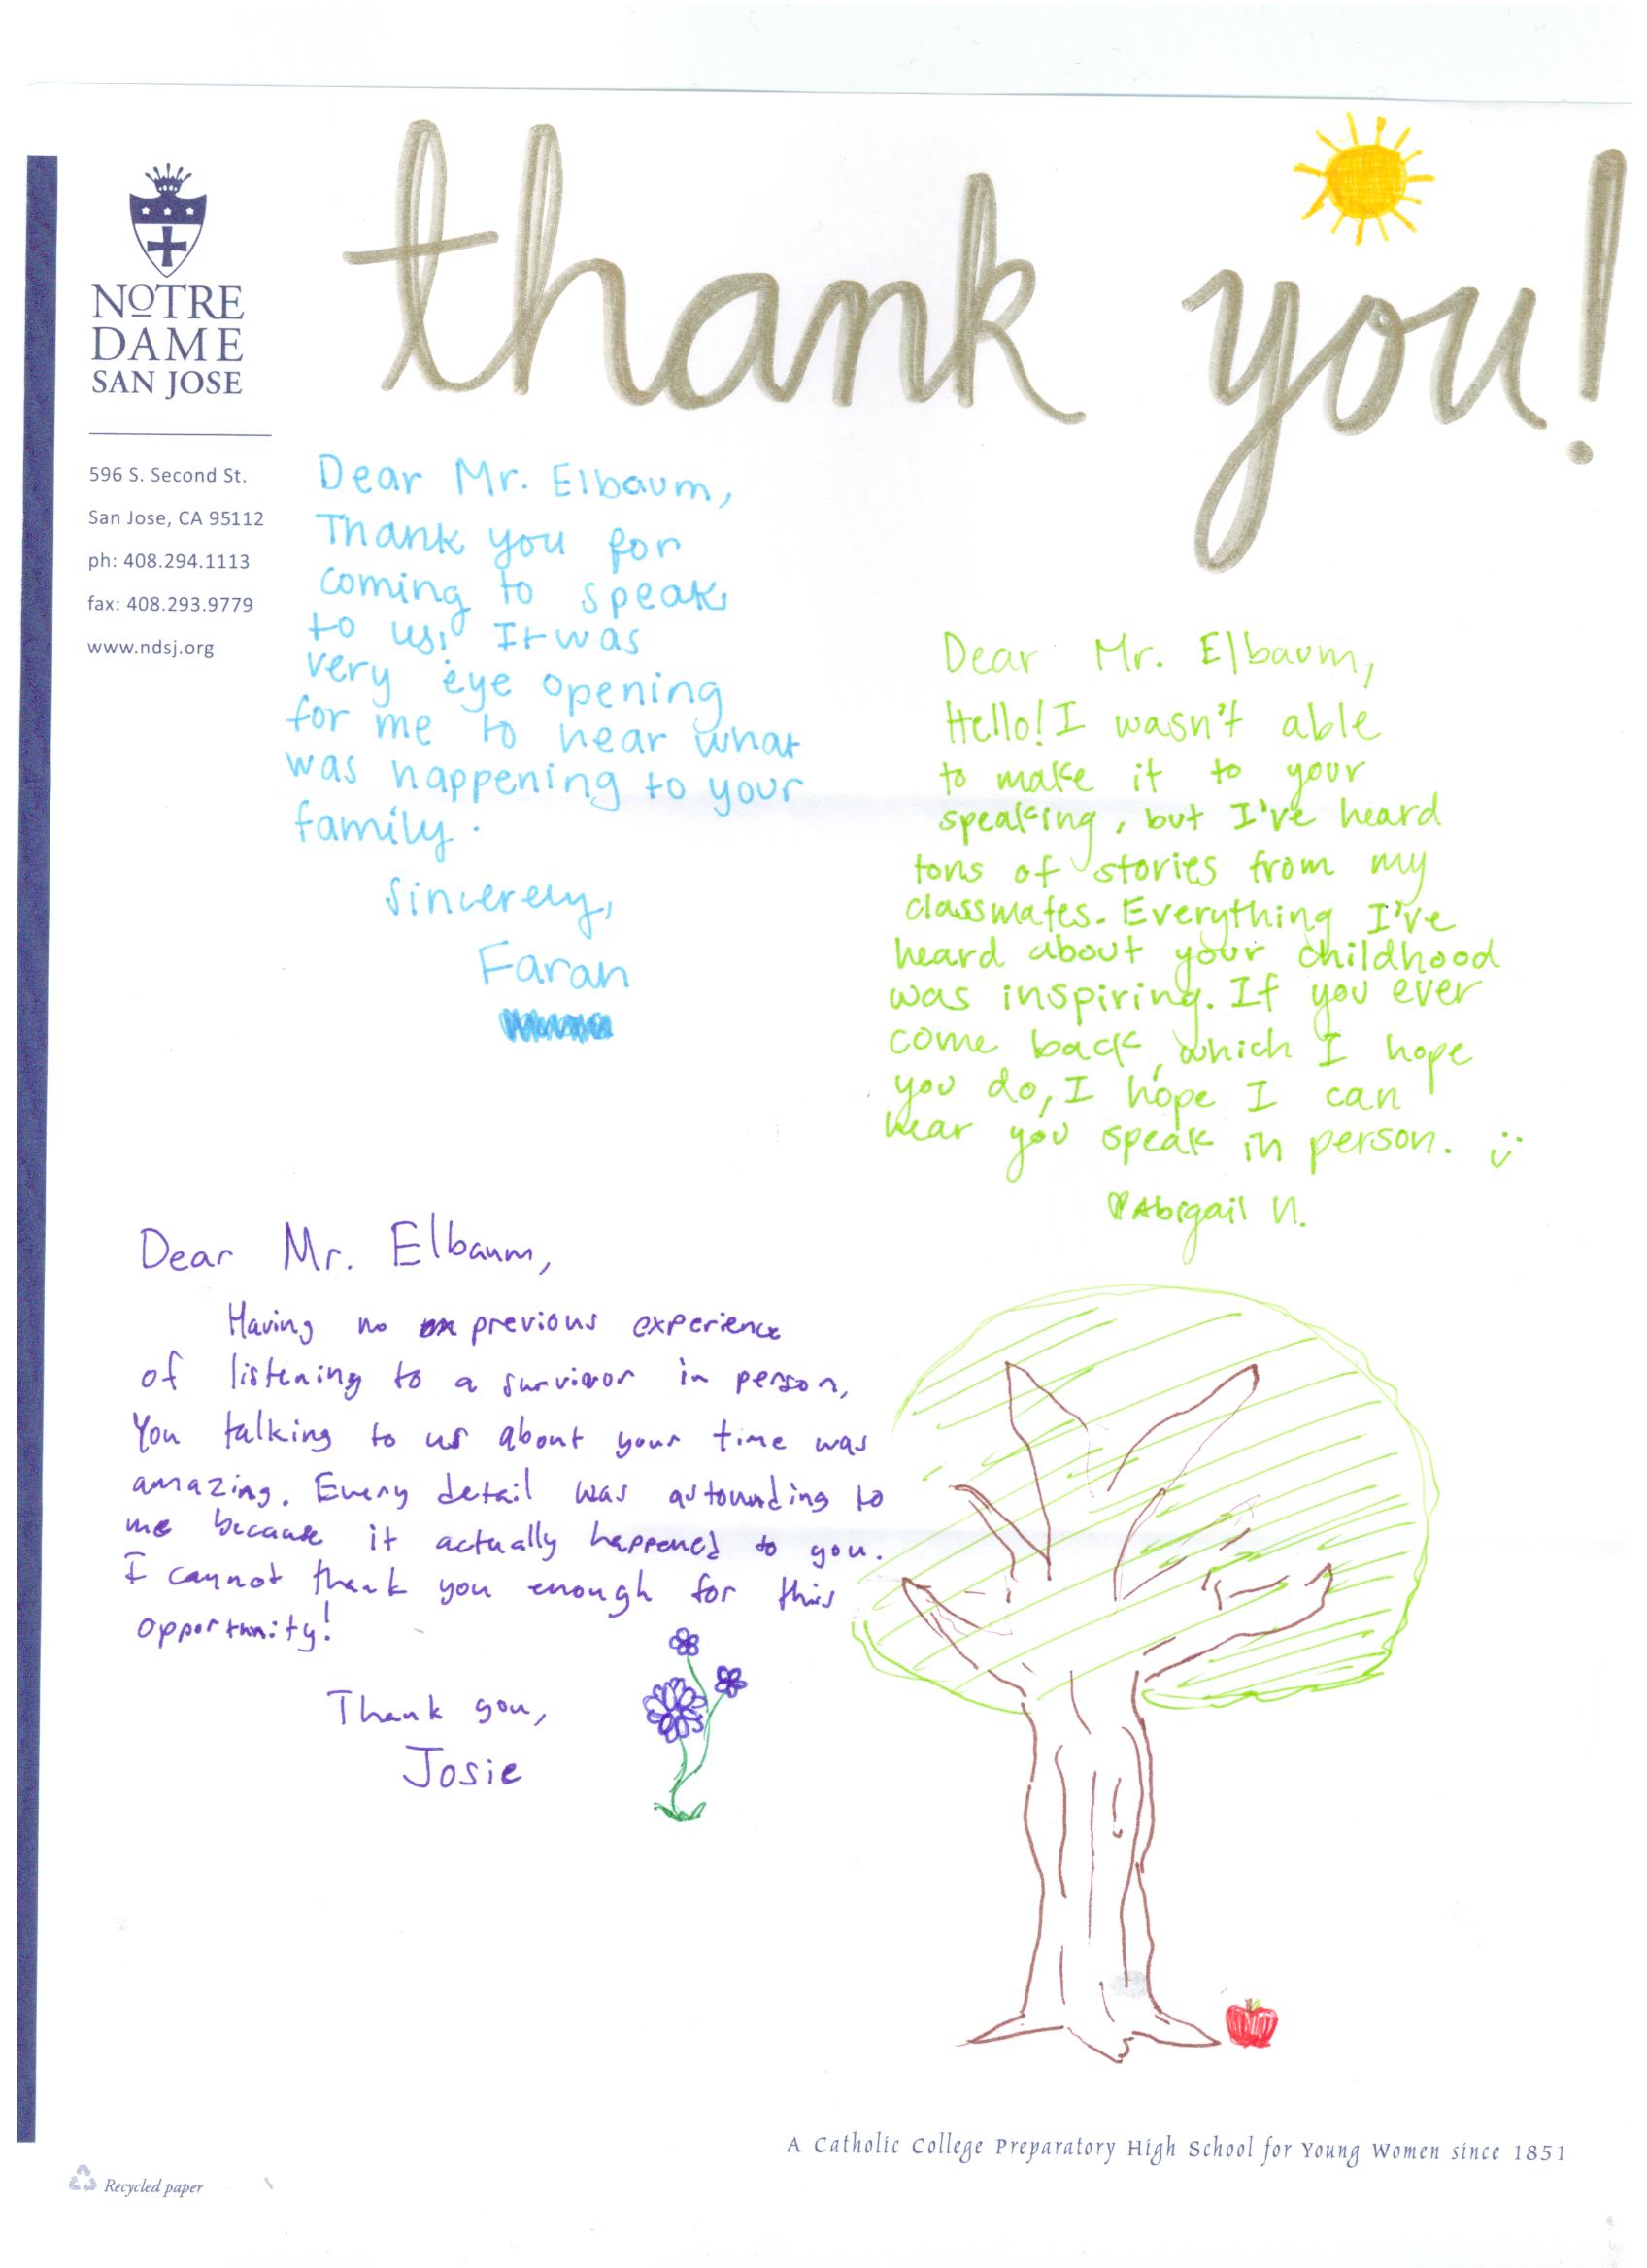 thank you!
NOTRE
DAME
SAN JOSE
596 S. Second St.
San Jose, CA 95112
ph: 408.294.1113
fax: 408.293.9779
www.ndsj.org
Dear Mr. Elbaum,
Thank you for
coming to speak
to us. It was
very eye opening
for me to hear what
was happening to your
family.
Sincerely,
Farah
Dear Mr. Elbaum,
Hello! I wasn't able
to make it to your
speaking, but I've heard
tons of stories from my
classmates. Everything I've
heard about your childhood
was inspiring. If you ever
come back, which I hope
you do, I hope I can
hear you speak in person. :)
♡Abigail N.
Dear Mr. Elbaum,
Having no previous experience
of listening to a survivor in person,
You talking to us about your time was
amazing. Every detail was astounding to
me because it actually happened to you.
I cannot thank you enough for this
opportunity!
Thank you,
Josie
A Catholic College Preparatory High School for Young Women since 1851
Recycled paper